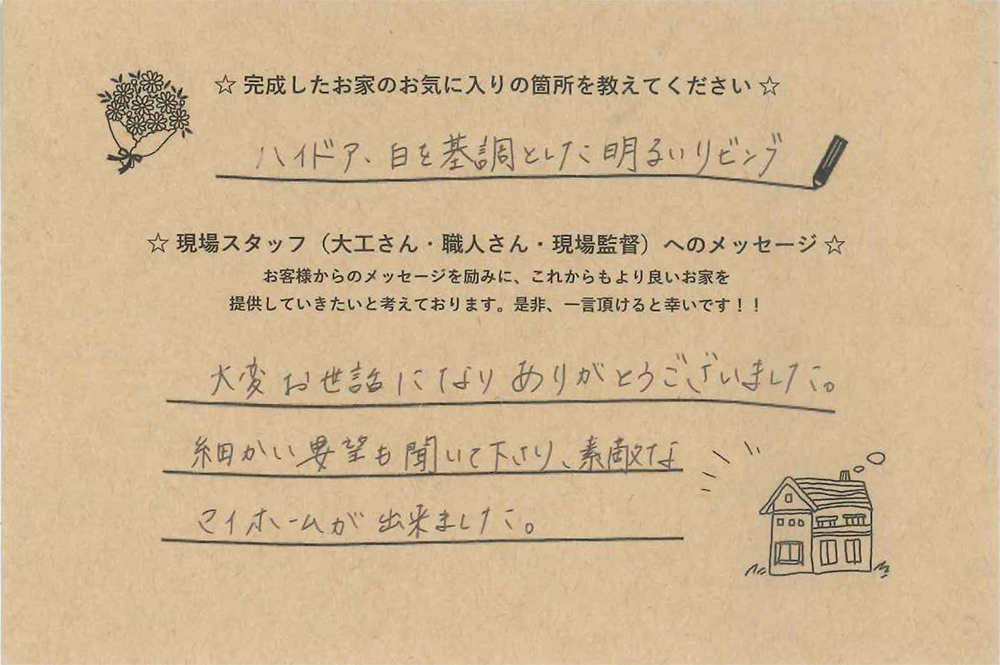 ☆ 完成したお家のお気に入りの箇所を教えてください ☆
ハイドア、白を基調とした明るいリビング
☆ 現場スタッフ（大工さん・職人さん・現場監督）へのメッセージ ☆
お客様からのメッセージを励みに、これからもより良いお家を
提供していきたいと考えております。是非、一言頂けると幸いです！！
大変お世話になりありがとうございました。
細かい要望も聞いて下さり、素敵な
マイホームが出来ました。